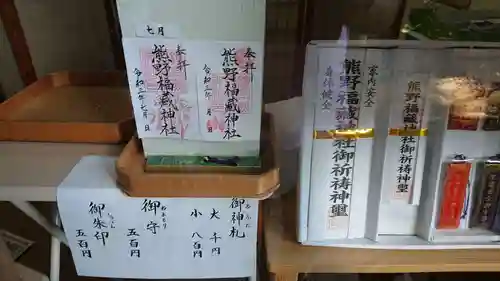 七月
奉拝
熊野福藏神社
令和三年七月 日
奉拝
熊野福藏神社
令和三年 月 日
家内安全
身体健全
熊野福藏神社御祈祷璽
熊野福藏神社御祈祷璽
御神札
おふだ
大 千円
小 八百円
御守
おまもり
五百円
御朱印
五百円